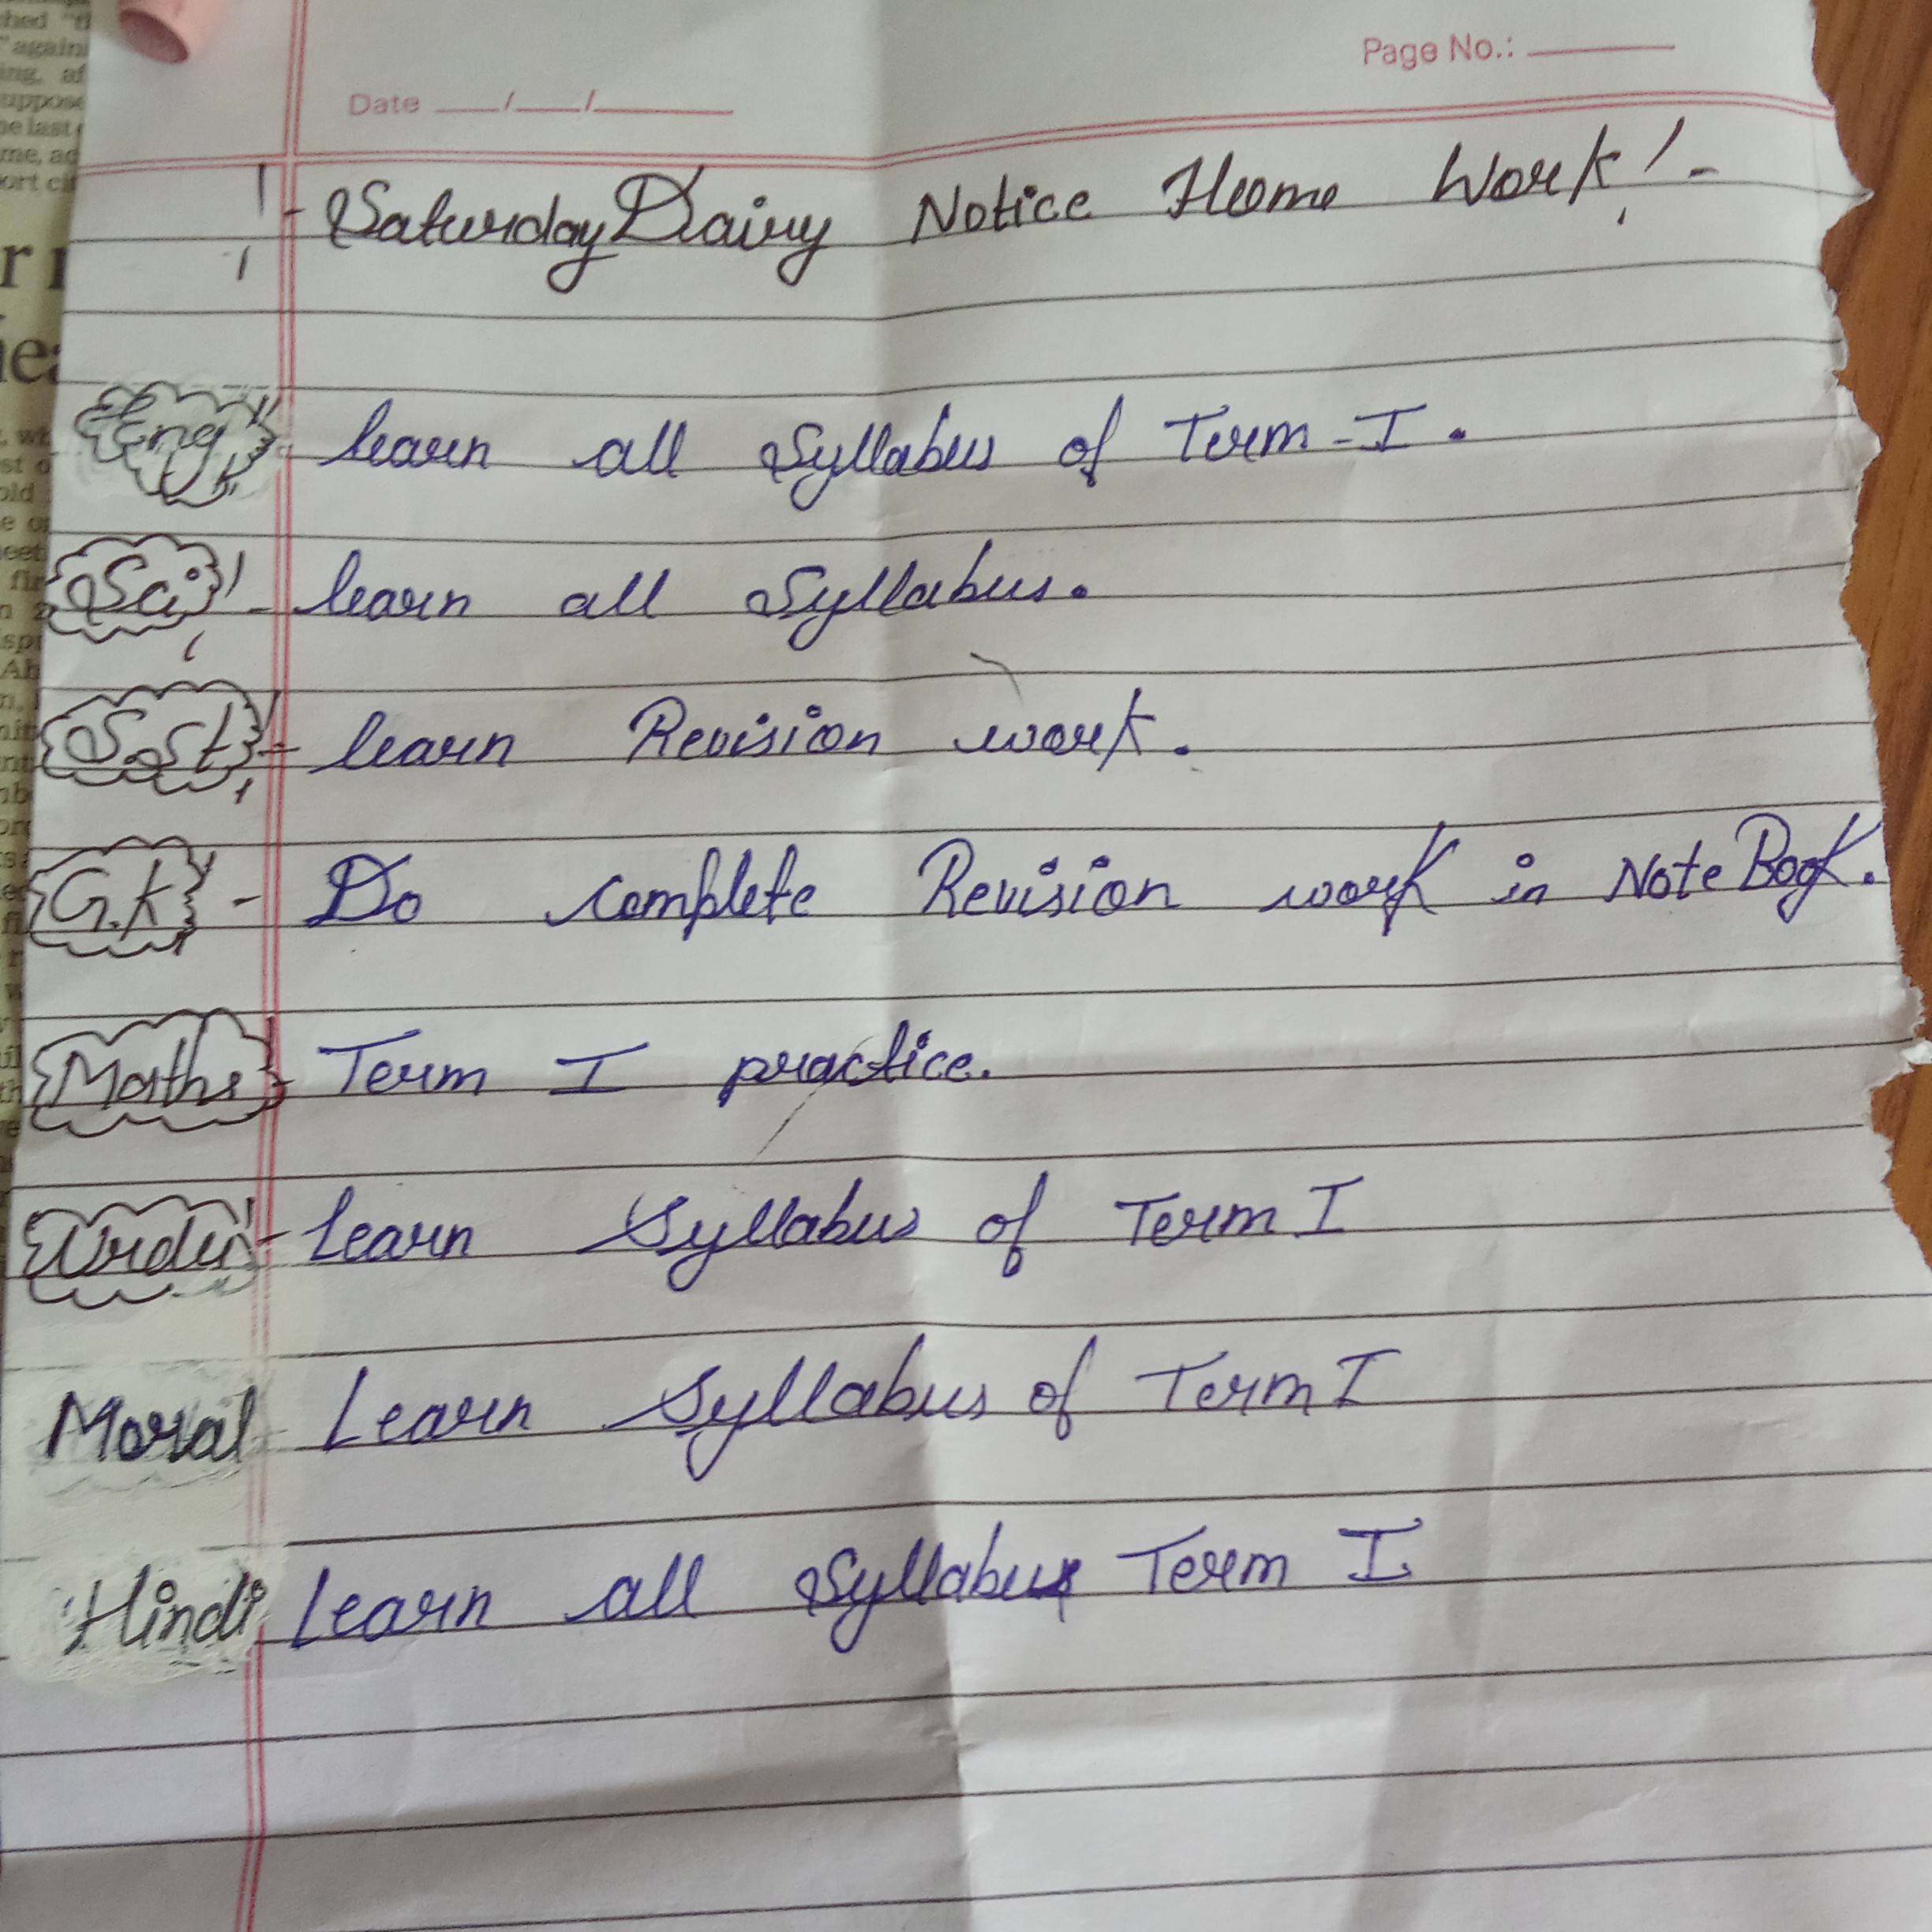 Page No.:
Date __/__/____
:- Saturday Dairy Notice Home Work:-
Eng:- learn all Syllabus of Term-I.
Sci:- learn all Syllabus.
S.St:- learn Revision work.
G.K:- Do complete Revision work in NoteBook.
Maths:- Term I practice.
Urdu:- Learn Syllabus of Term I
Moral- Learn Syllabus of Term I
Hindi Learn all Syllabus Term I